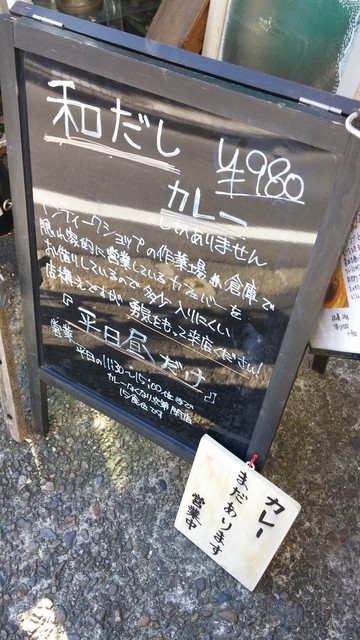 和だし
¥980
カレー
しかありません
アンティークショップの作業場兼倉庫で
隠れ家的に営業しているカフェバーを
お借りしているので多少入りにくい
店構えですが勇気をもって来店ください!
『平日昼だけ』
営業
平日の11:30〜15:00位まで
カレーなくなり次第閉店
15食位です
カレー
まだあります
営業中